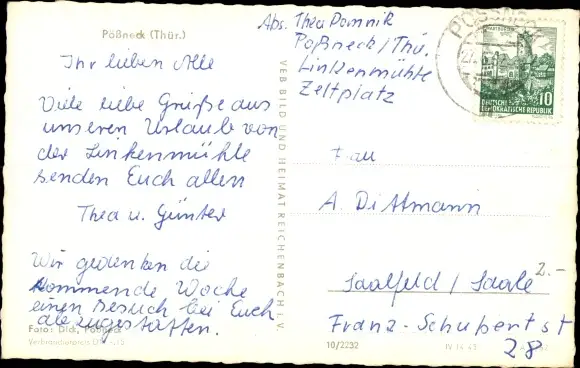 Pößneck (Thür.)
Ihr lieben Alle
Viele liebe Grüße aus
unseren Urlaub von
der Linkenmühle
senden Euch allen
Thea u. Günter
Wir gedenken die
kommende Woche
einen Besuch bei Euch
abzugestatten.
Foto: Dick, Pößneck
VEB BILD UND HEIMAT REICHENBACH i. V.
Abs. Thea Domnik
Poßneck/Thü.
Linkenmühle
Zeltplatz
PÖSSNECK
DEUTSCHE
DEMOKRATISCHE REPUBLIK
10
Frau
A. Dittmann
Saalfeld/Saale
2.-
Franz-Schubertst
28
10/2232